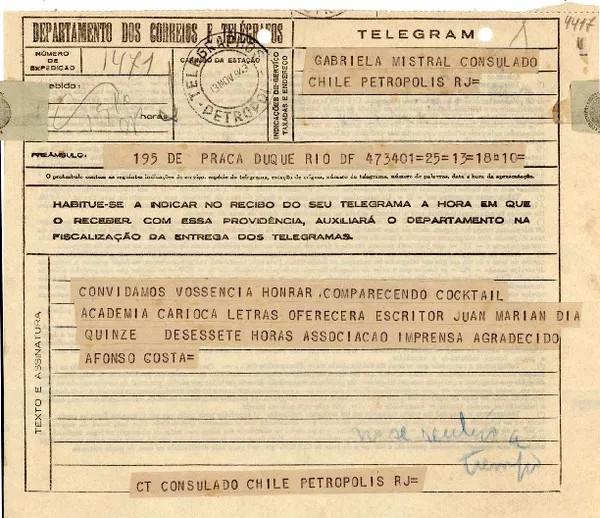 DEPARTAMENTO DOS CORREIOS E TELÉGRAFOS
TELEGRAMA
4417
NÚMERO DE EXPEDIÇÃO
1471
CARIMBO DA ESTAÇÃO
TELEGRAPHOS
13 NOV
PETROPOLIS
INDICAÇÕES DE SERVIÇO
TAXADAS E ENDEREÇO
GABRIELA MISTRAL CONSULADO
CHILE PETROPOLIS RJ=
horas
PREÂMBULO:
195 DE PRACA DUQUE RIO DF 473401=25=13=18 10=
O preâmbulo contém as seguintes indicações de serviço: espécie do telegrama, estação de origem, número do telegrama, número de palavras, data e hora da apresentação.
HABITUE-SE A INDICAR NO RECIBO DO SEU TELEGRAMA A HORA EM QUE
O RECEBER. COM ESSA PROVIDÊNCIA, AUXILIARÁ O DEPARTAMENTO NA
FISCALIZAÇÃO DA ENTREGA DOS TELEGRAMAS.
TEXTO E ASSINATURA
CONVIDAMOS VOSSENCIA HONRAR COMPARECENDO COCKTAIL
ACADEMIA CARIOCA LETRAS OFERECERA ESCRITOR JUAN MARIAN DIA
QUINZE DESESSETE HORAS ASSOCIACAO IMPRENSA AGRADECIDO
AFONSO COSTA=
no se recibió a
tiempo
CT CONSULADO CHILE PETROPOLIS RJ=